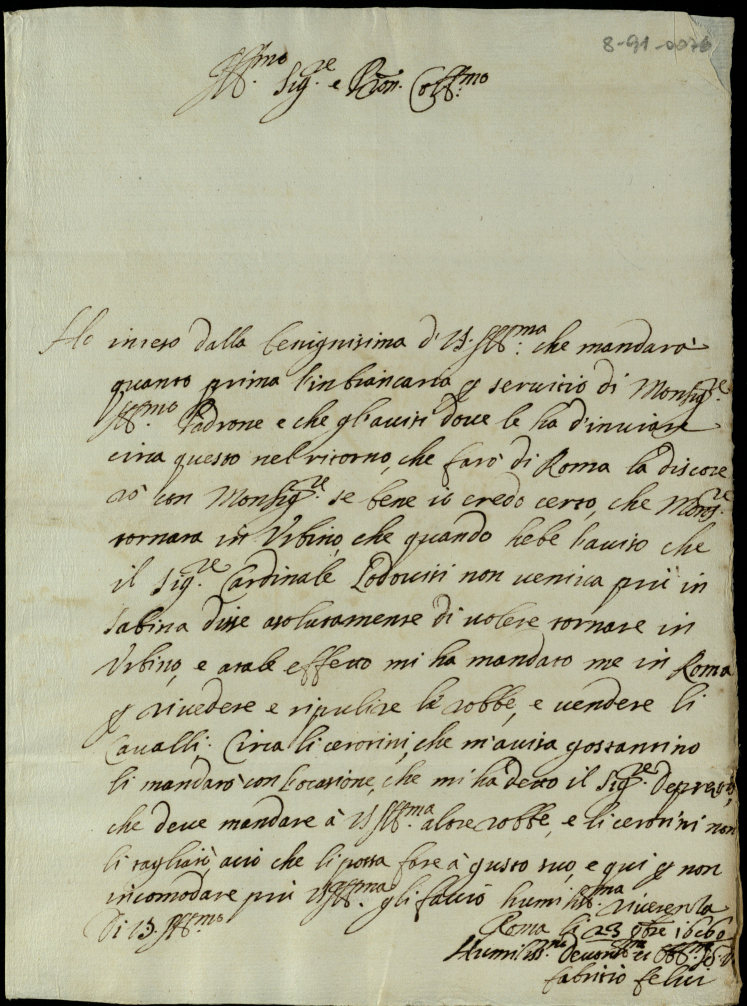 8-91-0076
Ill.mo Sig.re e Pron. Coll.mo
Ho inteso dalla benignissima d'VS. Ill.ma che mandarà
quanto prima l'inbiancaria p servitio di Monsig.re
Ill.mo Padrone e che gl'avisi dove le ha d'inviare
circa questo nel ritorno, che farò di Roma la discore
rò con Monsig.re se bene io credo certo, che Mons.re
tornara in Urbino, che quando hebe l'auiso che
il Sig.re Cardinale Lodouisi non veniva più in
Sabina disse asolutamense di volere tornare in
Urbino, e atale effetto mi ha mandato me in Roma
p rivedere e ripulire le robbe, e vendere li
Cavalli. Circa li cerotini, che m'auisa gostantino
li mandarò con l'ocasione, che mi ha detto il Sig.re
che deve mandare à VS Ill.ma altre robbe, e li cerotini non
li tagliarò, aciò che li possa fare à gusto suo, e qui p non
incomodare più VS Ill.ma gli faccio humiliss.ma riverenza
Roma li 23 9bre 1660
Di VS. Ill.mo
Humiliss.mo Devotiss.mo et Obb.mo
fabritio felici